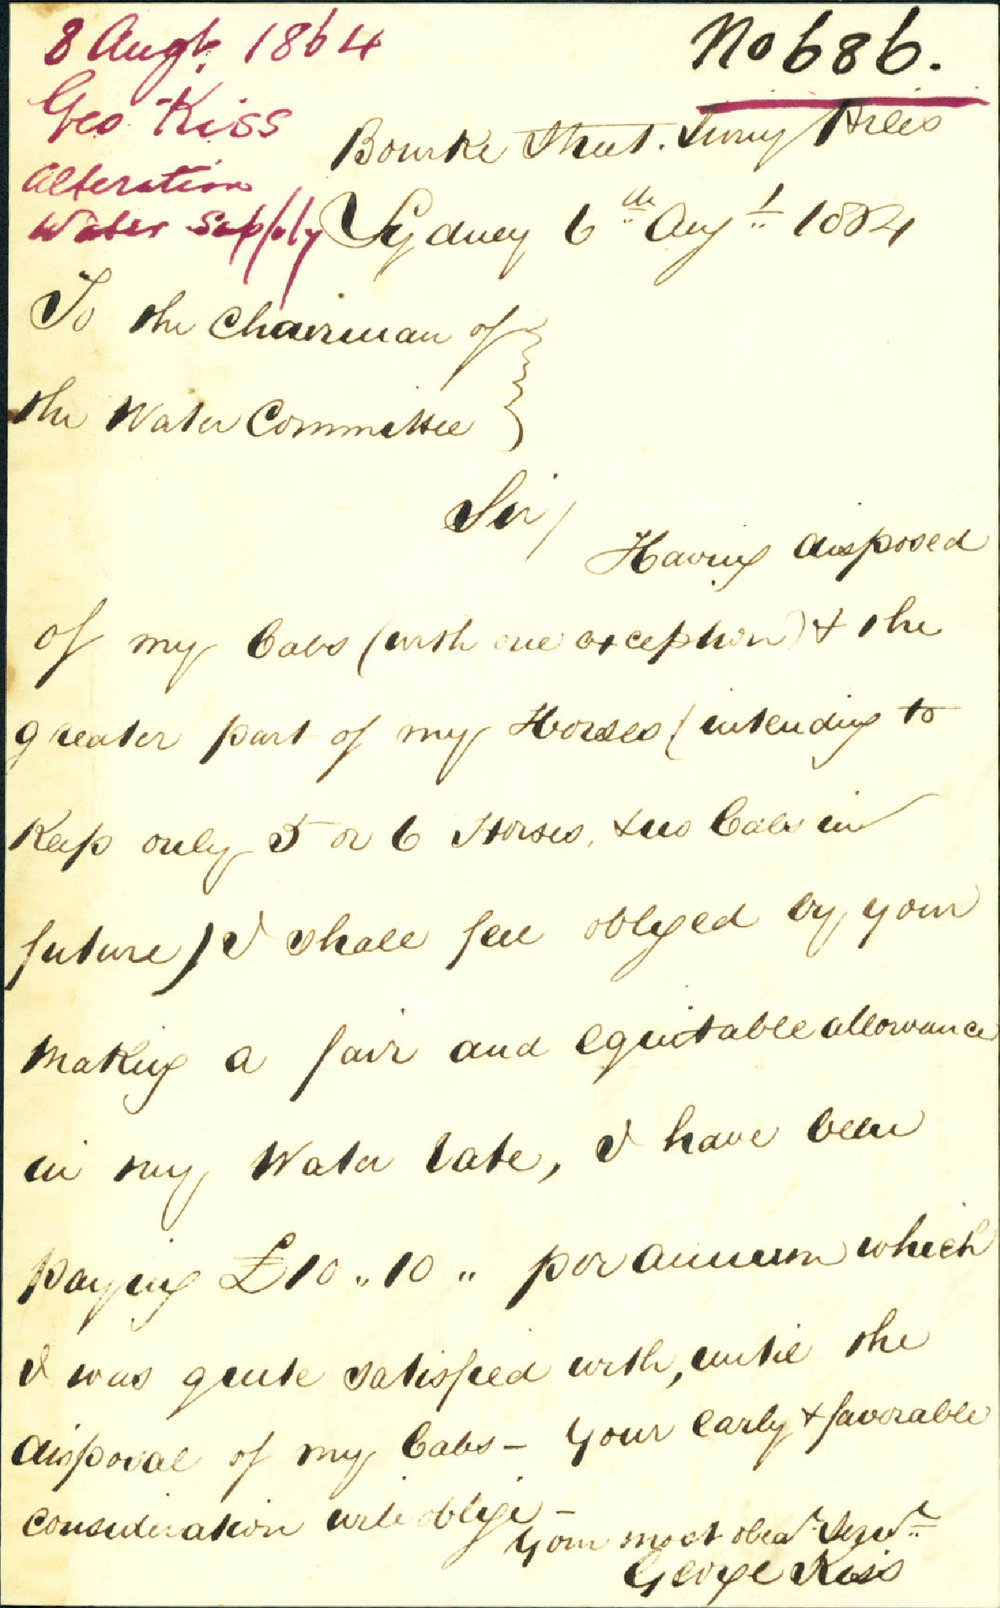 8 Augt. 1864
No 686.
Geo Kiss
Alteration
Water Supply
Bourke Street. Surry Hills
Sydney 6th Augt 1864
To the Chairman of
the Water Committee
Sir/
Having disposed
of my Cabs (with one exception) & the
greater part of my Horses (intending to
Keep only 5 or 6 Horses, & no Cabs in
future) I shall feel obliged by your
Making a fair and equitable allowance
in my Water rate, I have been
paying £10 .. 10 .. per annum which
I was quite satisfied with, until the
disposal of my Cabs – Your early & favorable
consideration will oblige –
Your most obedt. Servt.
George Kiss